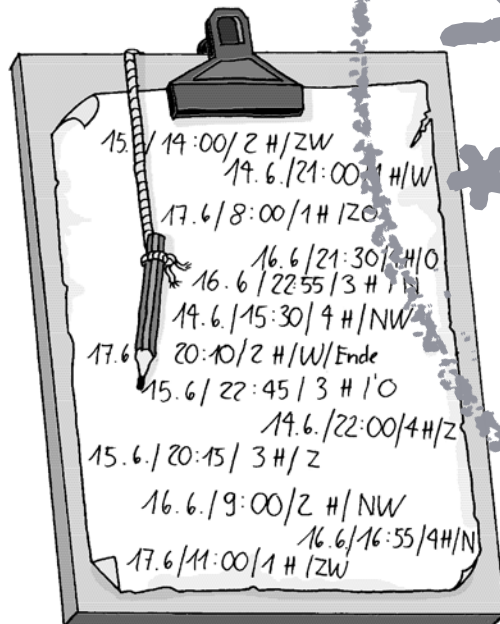 15. / 14:00/ 2 H/ZW
14.6./21:00 H/W
17.6/8:00/1H/ZO
16.6/21:30/ H/O
16.6/22:55/3 H/N
14.6./15:30/4 H/NW
17.6 20:10/2 H/W/Ende
15.6/22:45/3 H/O
14.6./22:00/4H/Z
15.6./20:15/ 3H/Z
16.6./9:00/2 H/NW
16.6/16:55/4H/N
17.6/11:00/1 H/ZW